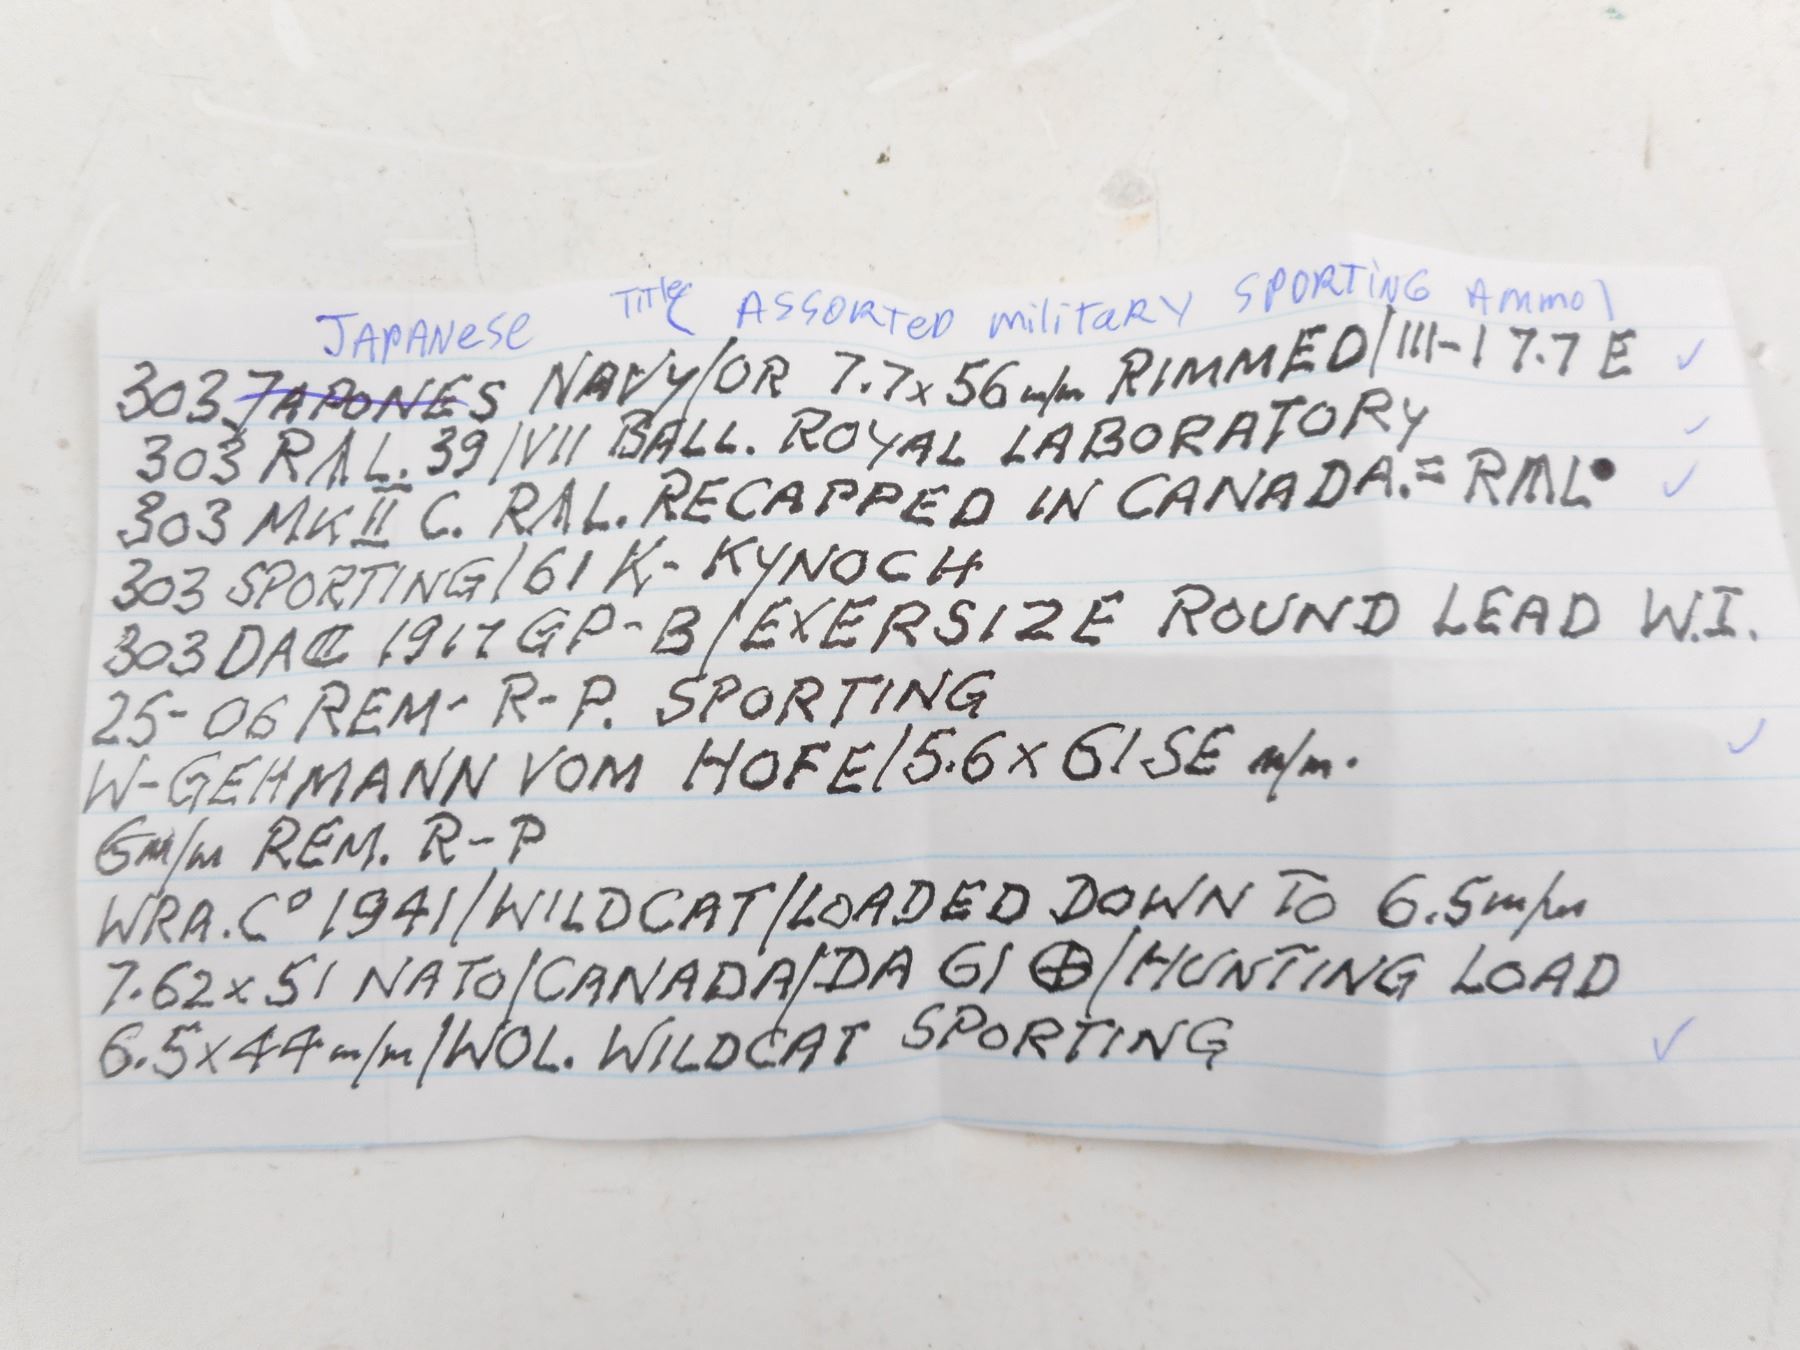 JAPANESE Title ASSORTED military SPORTiNG Ammo
303 JAPONES NAVY/OR 7.7x56m/m RIMMED/III-1 7.7 E ✓
303 R/\L. 39/VII BALL. ROYAL LABORATORY ✓
303 MK II C. R/\L. RECAPPED IN CANADA.= R/\L• ✓
303 SPORTING/61 K- KYNOCH
303 DAC 1917 GP-B/EXERSIZE ROUND LEAD W.I.
25-06 REM- R-P. SPORTING
W-GEHMANN VOM HOFE/5.6x61SE m/m. ✓
6m/m REM. R-P
WRA.Cº 1941/WILDCAT/LOADED DOWN TO 6.5m/m
7.62x51 NATO/CANADA/DA 61 ⊕/HUNTING LOAD
6.5x44m/m/WOL. WILDCAT SPORTING ✓